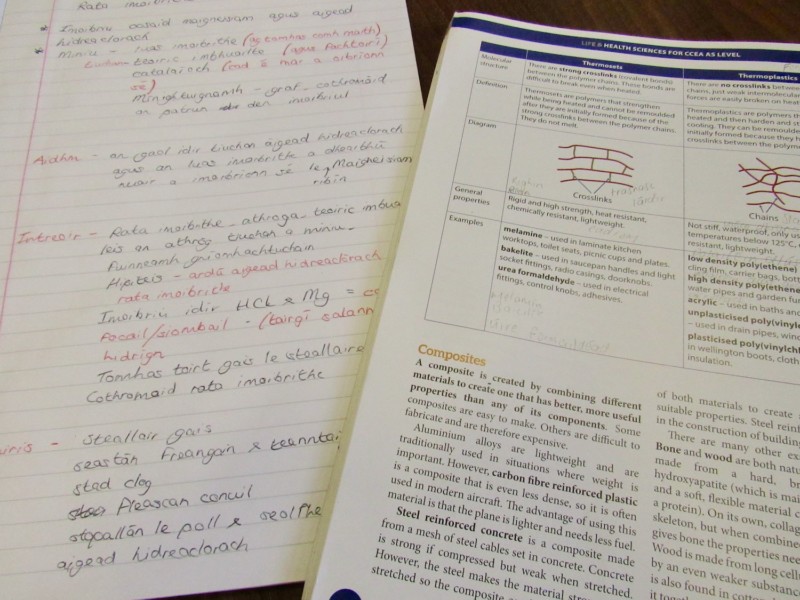 Rata imoibrithe
* Imoibriú ocsaíd maignéisiam agus aigéad
hidreaclórach
* Míniú - luas imoibrithe (ag tamhas comh math)
tiuchan teoiric imbhuailte (agus fachtóirí)
catalaíoch (cad é mar a oibríonn
sé)
an patrún den imoibriú
Aidhm - an gaol idir tiuchan aigéad hidreaclórach
agus an luas imoibrithe a dhéanthú
nuair a imoibríonn sé le Maignéisiam
ribín
Intreoir - Ráta imoibrithe athraga, teoiric imbua
leis an athrú tiuchan a míniú
Fuinneamh gníomhachtúcháin
Hipitéis - ardú aigéad hidreaclórach
ráta imoibrithe
Imoibriú idir HCL & Mg =
Focail/siombail - (táirgí salann
hidrigin
Tomhas toirt gáis le steallaire
Cothromóid ráta imoibrithe
- Steallair gáis
seastán freangáin & teanntaí
stad clog
fleascán cónúil
stopallán le poll &
aigéad hidreaclórach
LIFE & HEALTH SCIENCES FOR CCEA AS LEVEL
Thermosets
Thermoplastics
Molecular
structure
There are strong crosslinks (covalent bonds)
between the polymer chains. These bonds are
difficult to break even when heated.
There are no crosslinks between
chains, just weak intermolecular
forces are easily broken on heat
Definition
Thermosets are polymers that strengthen
while being heated and cannot be remoulded
after they are initially formed because of the
strong crosslinks between the polymer chains.
They do not melt.
Thermoplastics are polymers th
heated and then harden and st
cooling. They can be remoulde
initially formed because they h
crosslinks between the polyme
Diagram
Crosslinks
trasnasc
láidir
Chains
General
properties
Rigid and high strength, heat resistant,
chemically resistant, lightweight.
Not stiff, waterproof, only us
temperatures below 125°C,
resistant, lightweight.
Examples
melamine – used in laminate kitchen
worktops, toilet seats, picnic cups and plates.
bakelite – used in saucepan handles and light
socket fittings, radio casings, doorknobs.
urea formaldehyde – used in electrical
fittings, control knobs, adhesives.
low density poly(ethene)
cling film, carrier bags, bott
high density poly(ethene
water pipes and garden fur
acrylic – used in baths and
unplasticised poly(vinyl
– used in drain pipes, wind
plasticised poly(vinylch
in wellington boots, cloth
insulation.
Composites
A composite is created by combining different
materials to create one that has better, more useful
properties than any of its components. Some
composites are easy to make. Others are difficult to
fabricate and are therefore expensive.
Aluminium alloys are lightweight and are
traditionally used in situations where weight is
important. However, carbon fibre reinforced plastic
is a composite that is even less dense, so it is often
used in modern aircraft. The advantage of using this
material is that the plane is lighter and needs less fuel.
Steel reinforced concrete is a composite made
from a mesh of steel cables set in concrete. Concrete
is strong if compressed but weak when stretched.
However, the steel makes the material stro
stretched so the composite
of both materials to create
suitable properties. Steel reinf
in the construction of building
There are many other ex
Bone and wood are both natu
made from a hard, br
hydroxyapatite (which is mai
and a soft, flexible material c
a protein). On its own, collag
skeleton, but when combined
gives bone the properties nee
Wood is made from long cell
by an even weaker substanc
is also found in cotto
it toge